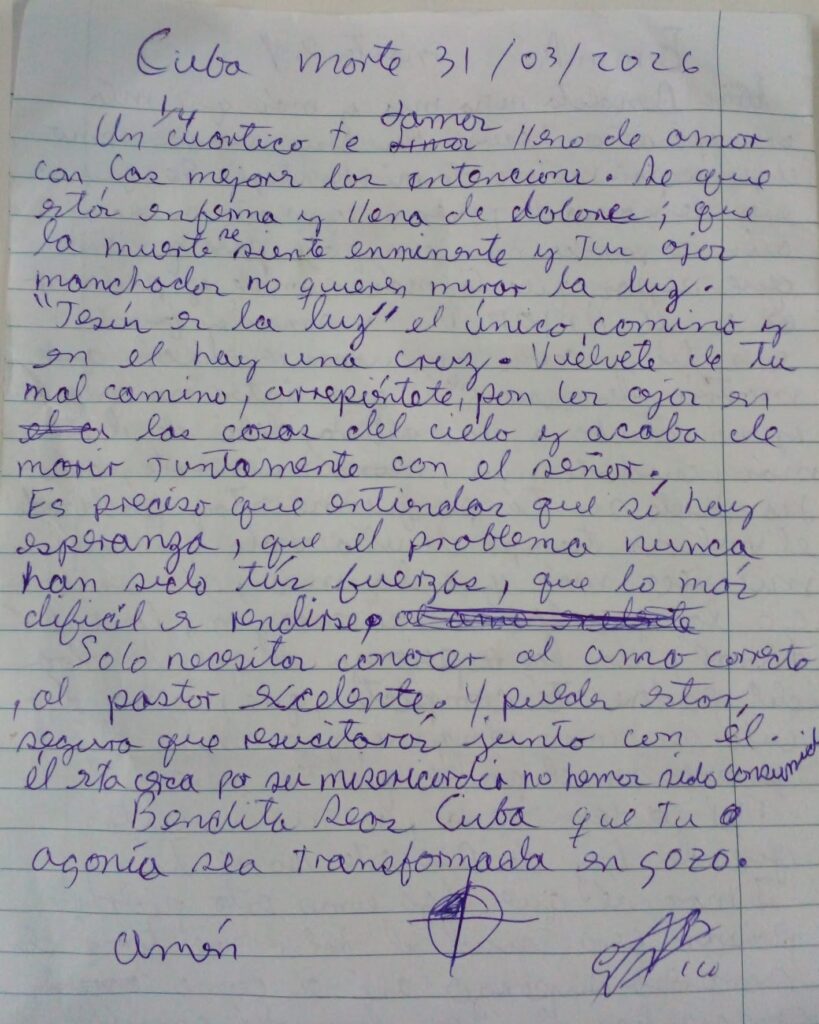 Cuba morte 31/03/2026
1/4 damos
Un cuartico te lleno de amor
con las mejore las intencione. Se que
estás enferma y llena de dolores; que
la muerte se siente enminente y Tus ojos
manchados no quieren mirar la luz.
"Jesús es la luz" el único camino y
en el hay una cruz. Vuélvete de tu
mal camino, arrepiéntete, pon los ojos en
las cosas del cielo y acaba de
morir Juntamente con el señor.
Es preciso que entiendas que sí hay
esperanza, que el problema nunca
han sido tús fuerzas, que lo más
dificil es rendirse,
Solo necesitas conocer al amo correcto
, al pastor excelente. Y puedes estar,
segura que resucitarás junto con él.
él esta cerca por su misericordia no hemos sido consumid
Bendita Seas Cuba que Tu
agonía sea Transformada en gozo.
amén